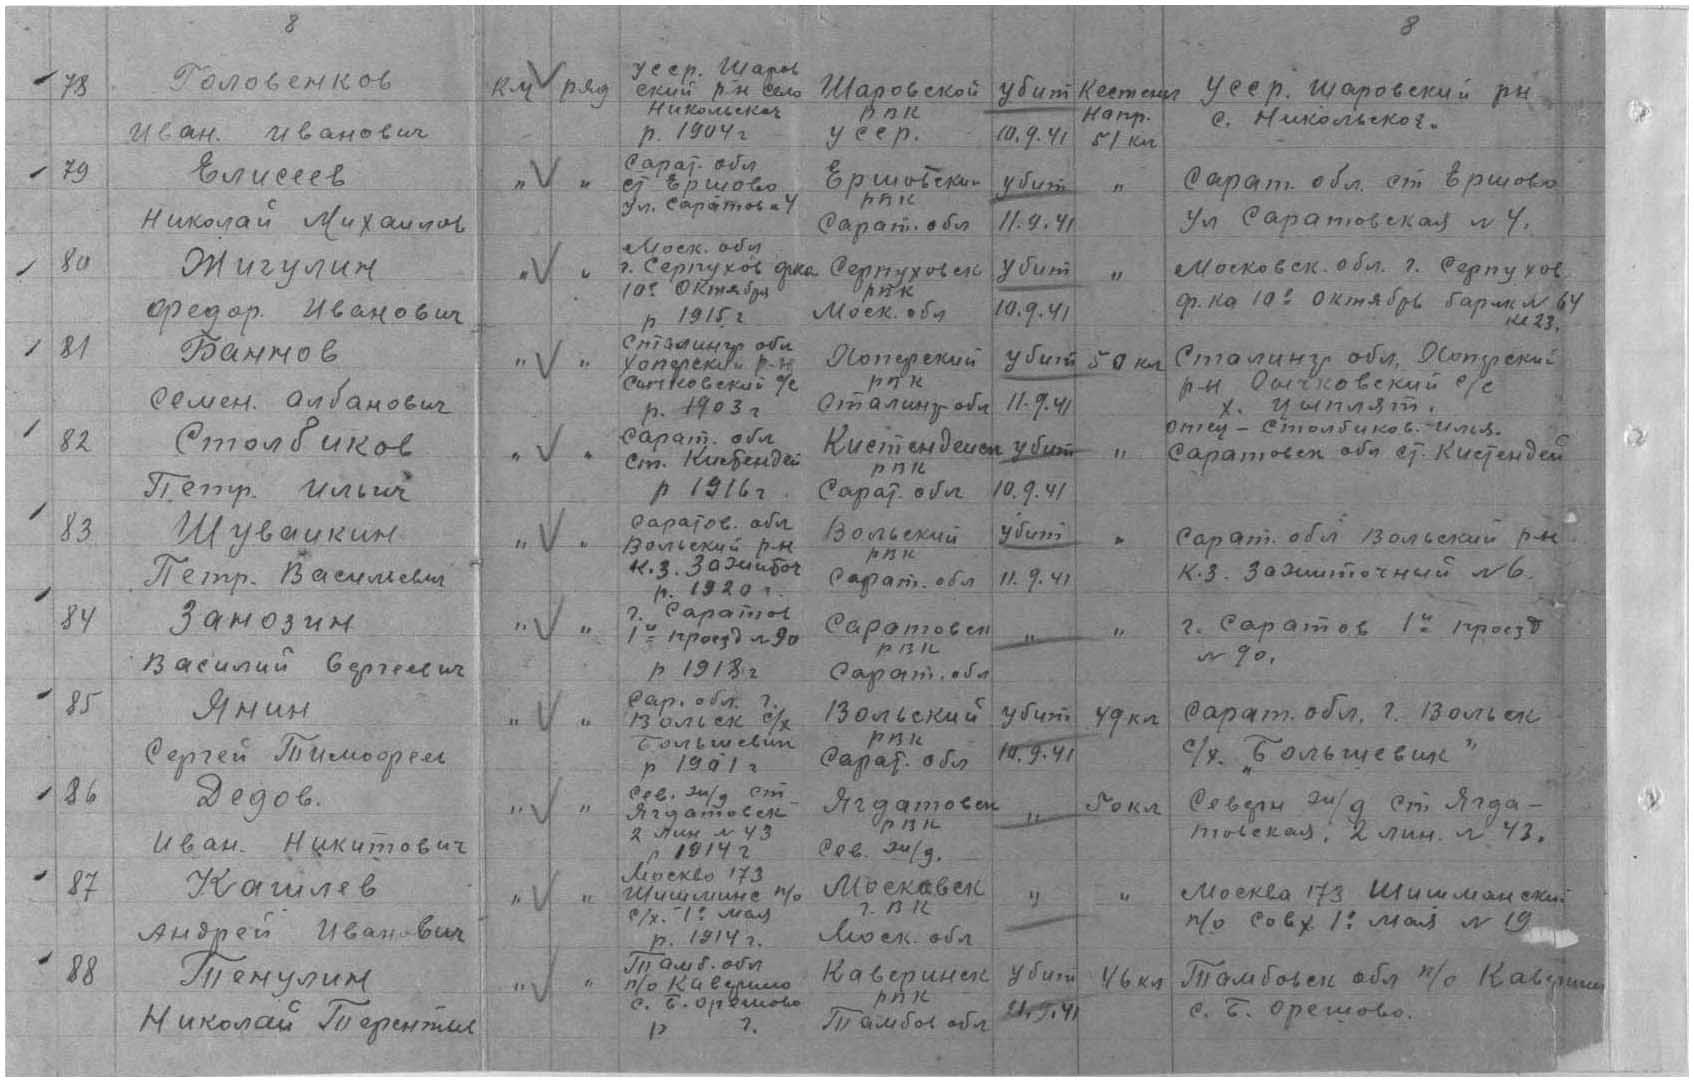 8 8
78 Головенков км ряд усср. Шаров ский р-н село Никольское р. 1904 г Шаровской рвк усср. убит 10.9.41 Кестеньг Напр. 51 кл усср. Шаровский рн с. Никольское.
Иван. Иванович
79 Елисеев " " Сарат. обл ст Ершово ул. Саратов. 4 Ершовский рвк Сарат. обл убит 11.9.41 " Сарат. обл. ст Ершово ул Саратовская № 4.
Николай Михайлов
80 Жигулин " " Моск. обл г. Серпухов ф-ка 10й Октября р 1915 г Серпуховск рвк Моск. обл убит 10.9.41 " Московск. обл. г. Серпухов ф-ка 10й Октябрь барак № 64 к 23.
Федор. Иванович
81 Баннов " " Сталингр обл Хоперский р-н р. 1903 г Хоперский рвк Сталингр обл убит 11.9.41 50 кл Сталингр обл, Хоперский р-н с/с х. Цыплят.
Семен. Албанович
82 Столбиков " " Сарат. обл ст. Кистендей р 1916 г Кистендейск рвк Сарат. обл убит 10.9.41 " отец – Столбиков. Илья. Саратовск обл ст. Кистендей
Петр. Ильич
83 Шувайкин " " Саратов. обл Вольский р-н к.з. Зажиточ р. 1920 г. Вольский рвк Сарат. обл убит 11.9.41 " Сарат. обл Вольский р-н к.з. Зажиточный № 6.
Петр. Васильевич
84 Занозин " " г. Саратов 1й проезд № 90 р 1918 г Саратовск рвк Сарат. обл " " г. Саратов 1й проезд № 90.
Василий Сергеевич
85 Янин " " Сар. обл. г. Вольск с/х Большевик р 1901 г Вольский рвк Сарат. обл убит 10.9.41 49 кл Сарат. обл. г. Вольск с/х. „Большевик"
Сергей Тимофеев
86 Дедов. " " Сев. ж/д ст Ягдатовск 2 лин № 43 р 1914 г Ягдатовск рвк Сев. ж/д. " 50 кл Северн ж/д ст Ягда– товская. 2 лин. № 43.
Иван. Никитович
87 Кашлев " " Москва 173 п/о с/х. 1й мая р. 1914 г. Московск г. вк Моск. обл " " Москва 173 Шишманский п/о совх 1й мая № 19
Андрей Иванович
88 Тенулин " " Тамб. обл п/о Каверино с. Б. Орешово р г. Каверинск рвк Тамбов обл убит 11.9.41 46 кл Тамбовск обл п/о Каверино с. Б. Орешово.
Николай Терентьев